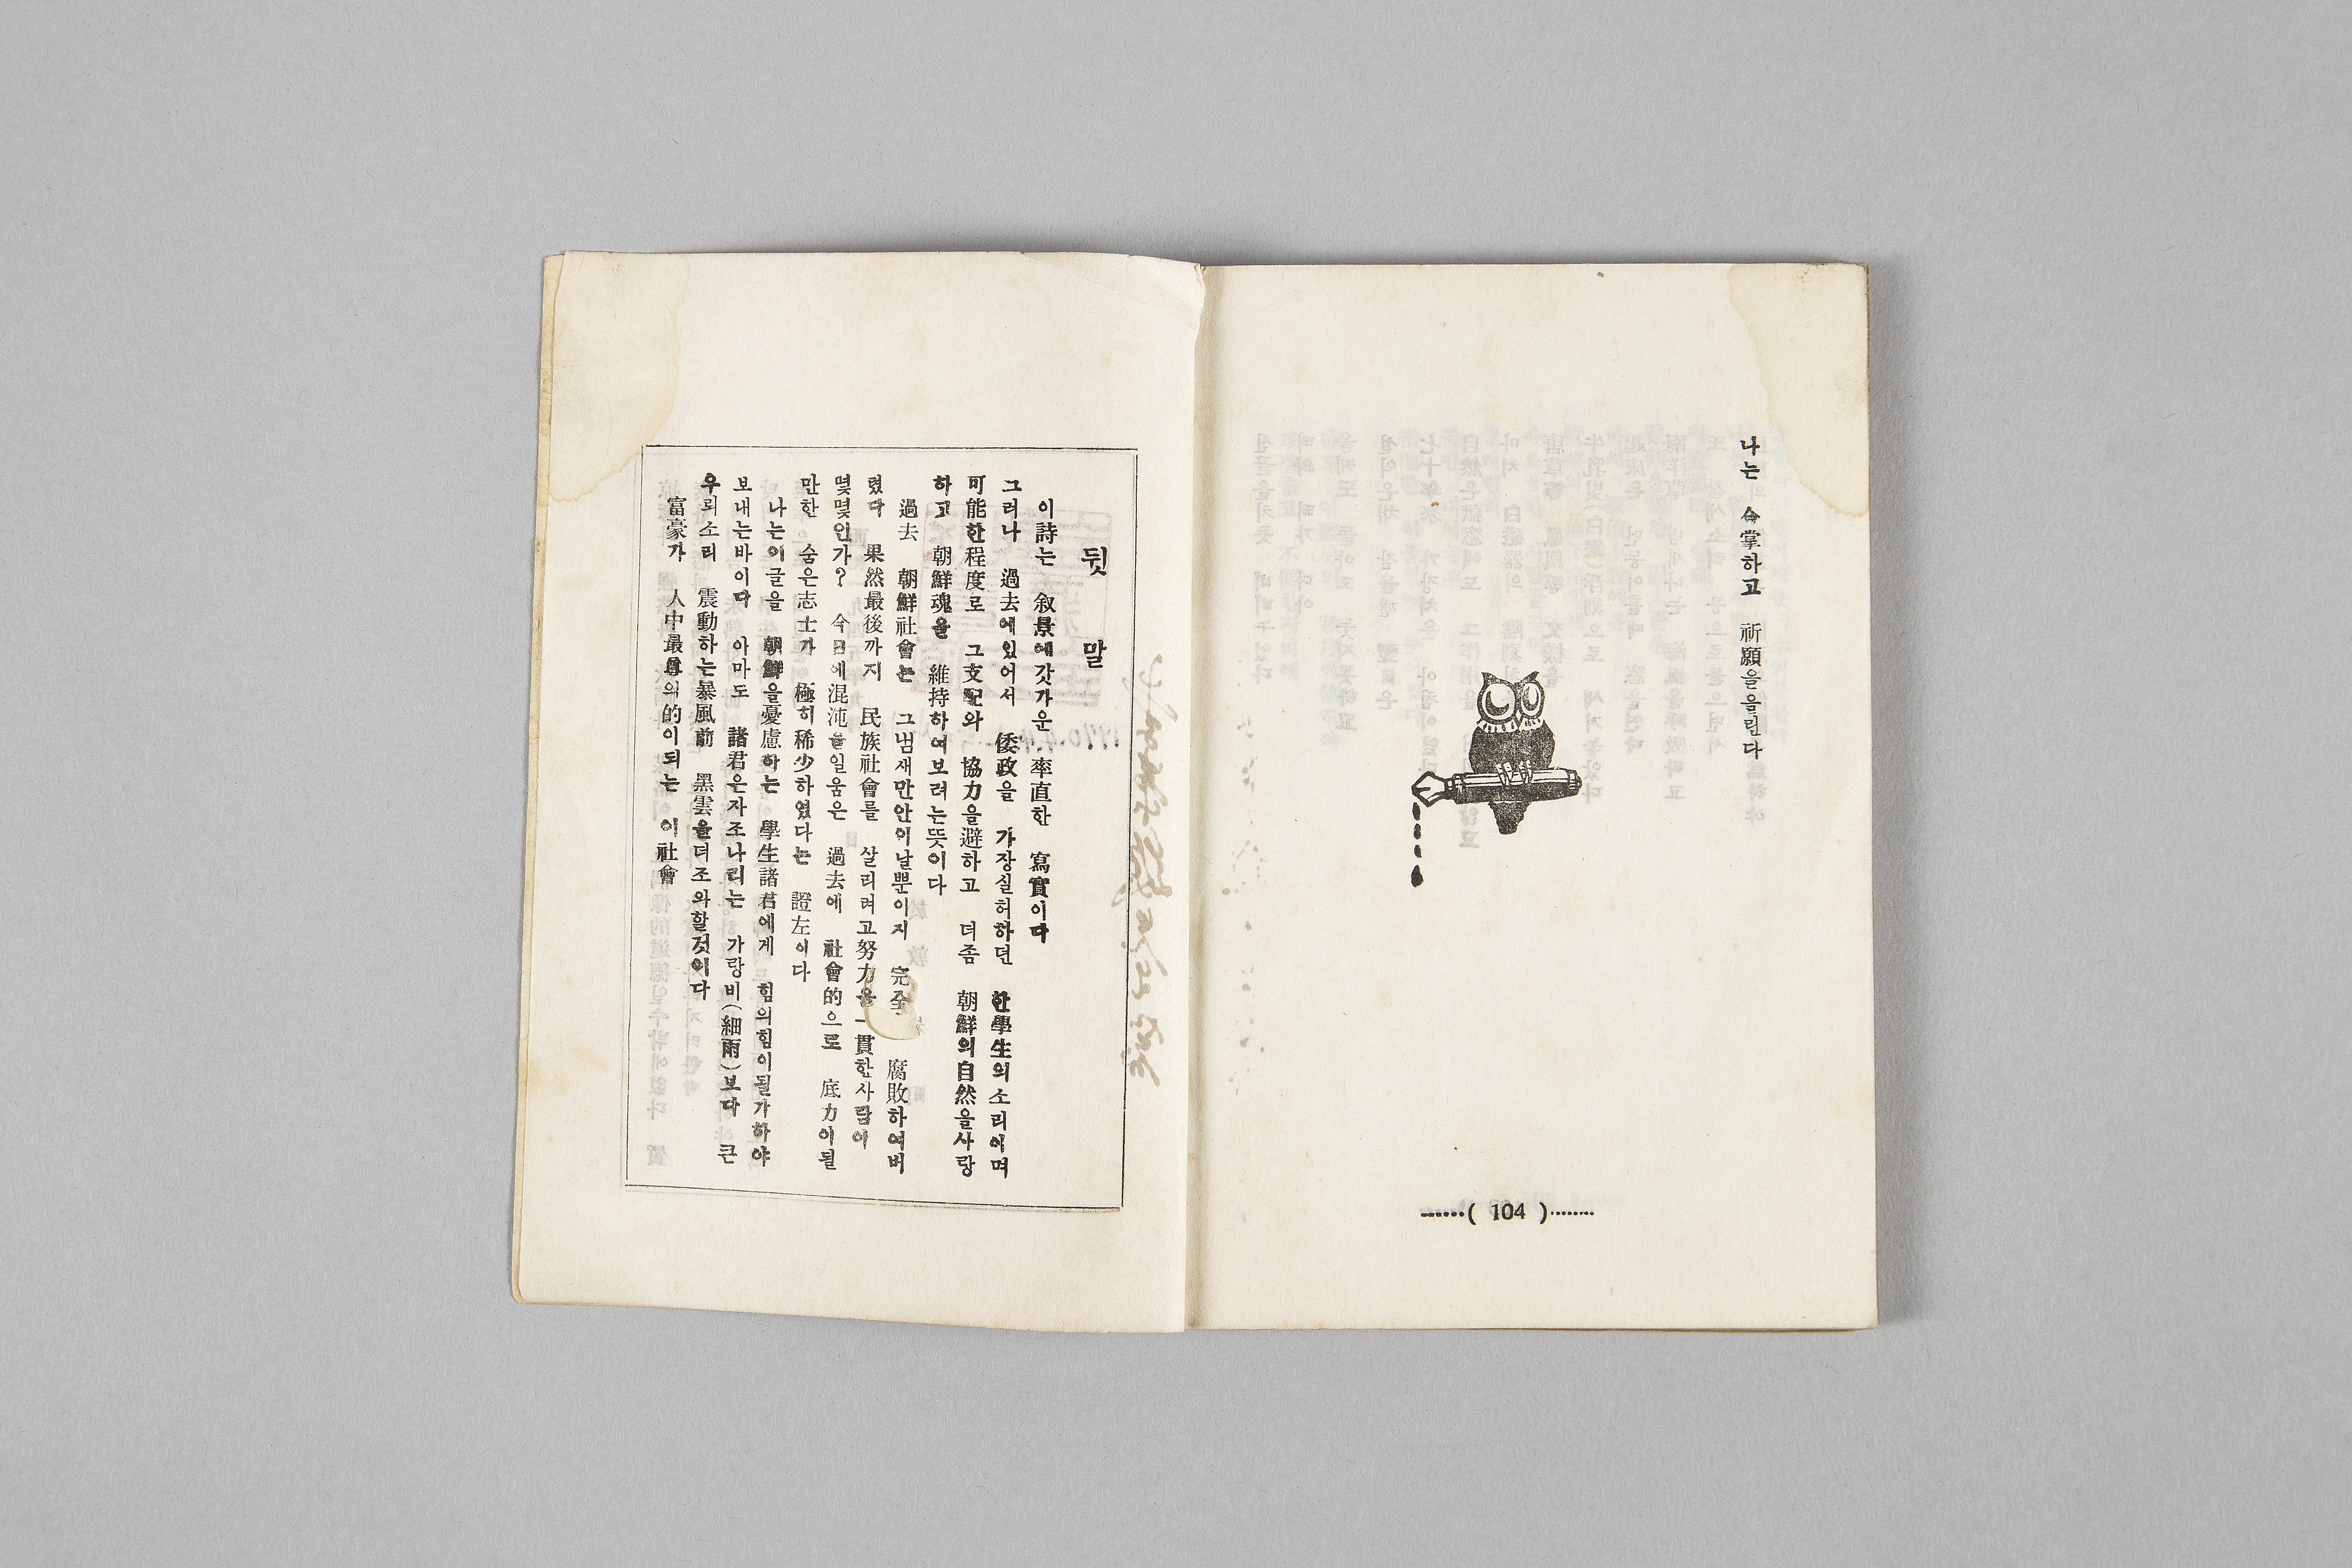 나는 合掌하고 祈願을올린다
……( 104 )……
뒷말
이詩는 叙景에갓가운 率直한 寫實이다
그러나 過去에있어서 倭政을 가장실허하던 한學生의소리이며
可能한程度로 그支配와 協力을避하고 더좀 朝鮮의自然을사랑
하고 朝鮮魂을 維持하여보려는뜻이다
過去 朝鮮社會는 그냄새만안이날뿐이지 完全 腐敗하여버
렸다 果然最後까지 民族社會를 살리려고努力을一貫한사람이
몇몇인가? 今日에混沌을일움은 過去에 社會的으로 底力이될
만한 숨은志士가 極히稀少하였다는 證左이다
나는이글을 朝鮮을憂慮하는 學生諸君에게 힘의힘이될가하야
보내는바이다 아마도 諸君은자조나리는 가랑비(細雨)보다 큰
우뢰소리 震動하는暴風前 黑雲을더조와할것이다
富豪가 人中最尊의的이되는 이社會